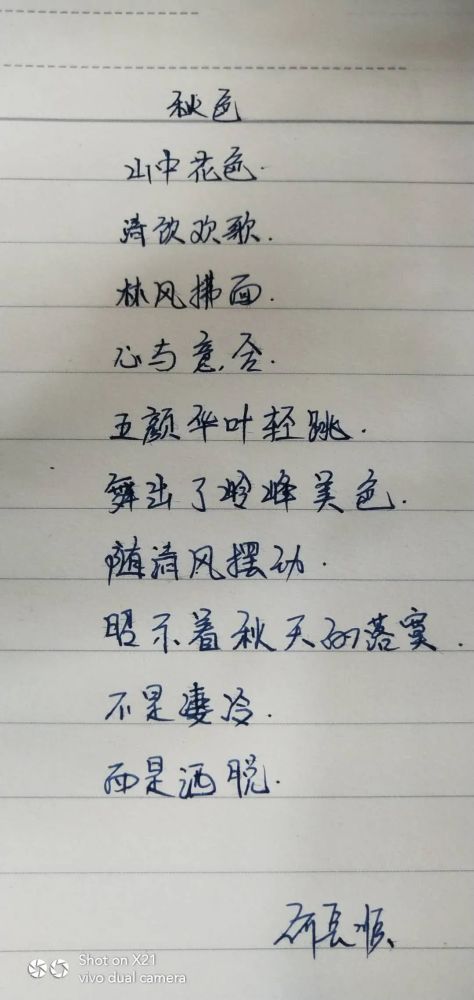 秋色
山中花色.
涛欢歌.
林风拂面.
心与意合.
五颜华叶轻跳.
舞出了岭峰美色.
随清风摆动.
昭示着秋天的落寞.
不是凄冷.
而是洒脱.
长顺
Shot on X21
vivo dual camera